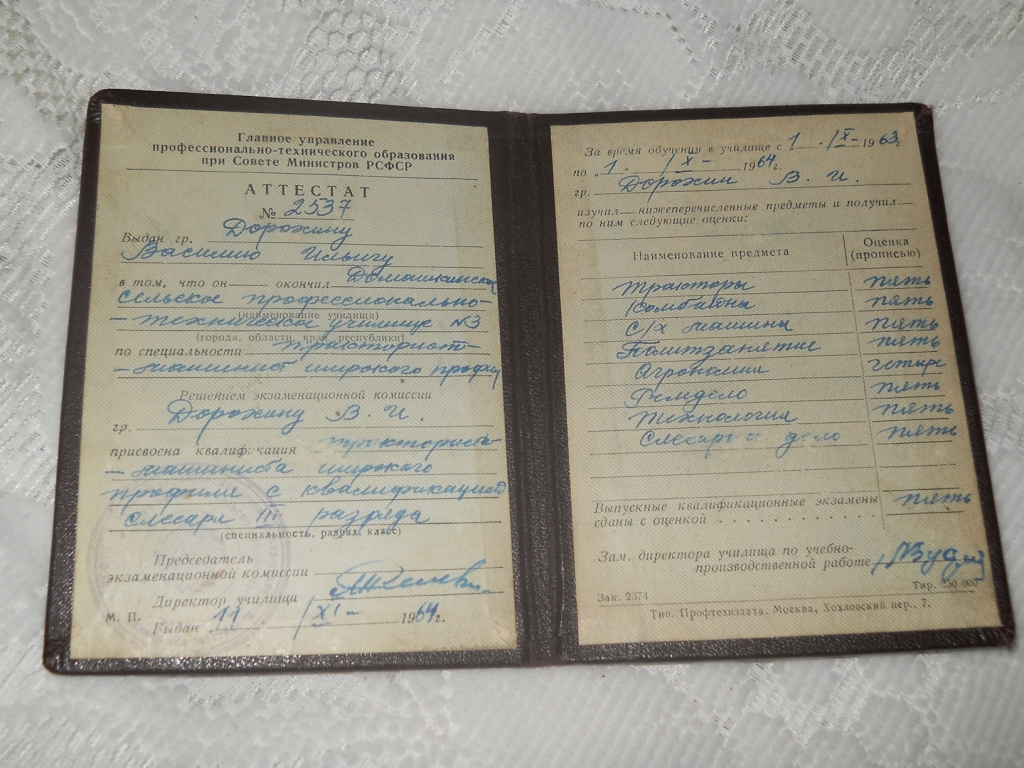 Главное управление
профессионально-технического образования
при Совете Министров РСФСР
АТТЕСТАТ
№ 2537
Выдан гр. Дорожину
Василию Ильичу
в том, что он окончил Домашкинское
сельское профессионально-
(наименование училища)
-техническое училище №3
(города, области, края, республики)
по специальности тракторист-
-машинист широкого профиля
Решением экзаменационной комиссии
гр. Дорожину В. И.
присвоена квалификация тракториста-
-машиниста широкого
профиля с квалификацией
слесаря III разряда
(специальность, разряд, класс)
Председатель
экзаменационной комиссии
Директор училища
М. П. Выдан 11 /XI- 1964г.
За время обучения в училище с 1 /X- 1963г.
по „1. /X- 1964г.
гр. Дорожин В. И.
изучил нижеперечисленные предметы и получил
по ним следующие оценки:
Наименование предмета Оценка (прописью)
тракторы пять
Комбайны пять
С/х машины пять
Политзанятие пять
Агрономии четыре
Ремдело пять
Технология пять
Слесарное дело пять
Выпускные квалификационные экзамены
сданы с оценкой . . . . . . . . . . пять
Зам. директора училища по учебно-
производственной работе
Зак. 2574 Тир. 350 000
Тип. Профтехиздата. Москва, Хохловский пер., 7.